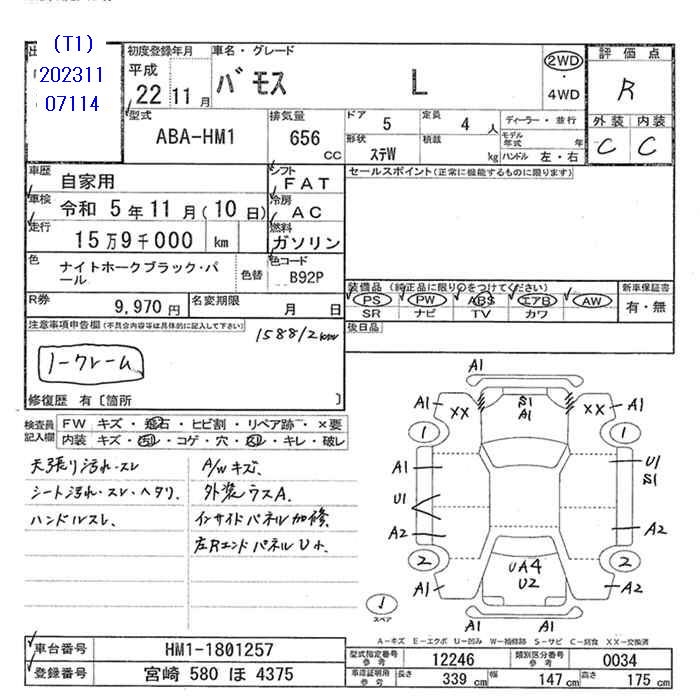 (T1)
202311
07114
初度登録年月
平成
22 11月
車名・グレード
バモス L
2WD
・
4WD
評価点
R
外装 内装
C C
型式
ABA-HM1
排気量
656
CC
ドア 5
定員 4 人
形状 ステW
積載 kg
ディーラー・並行
モデル年式 年
ハンドル 左・右
車歴
自家用
シフト
FAT
車検
令和 5年11月(10日)
冷房
AC
走行
15万9千000 km
燃料
ガソリン
色
ナイトホークブラック・パール
色替
色コード
B92P
R券
9,970円
名変期限
月 日
セールスポイント(正常に機能するものに限ります)
装備品(純正品に限り○をつけてください)
PS PW ABS エアB AW
SR ナビ TV カワ
新車保証書
有・無
後日品
注意事項申告欄(不具合内容等は具体的に記入して下さい)
158812km
ノークレーム
修復歴 有〔箇所 〕
検査員記入欄
FW キズ・飛石・ヒビ割・リペア跡・×要
内装 キズ・汚レ・コゲ・穴・凶レ・キレ・破レ
天張り汚れ・スレ
シート汚れ・スレ・ヘタリ.
ハンドルスレ.
A/Wキズ.
外装ウスA.
インサイドパネル加修.
左Rエンドパネル U小.
A1
A1 XX S1 A1 XX A1
1 1
A1 U1 S1
U1
A2 A2
2 UA4 U2 2
A1 A2
A1 A1
スペア
A-キズ E-エクボ U-凹み W-補修跡 S-サビ C-腐食 XX-交換済
車台番号 HM1-1801257
登録番号 宮崎 580 ほ 4375
型式指定番号 参考 12246
類別区分番号 参考 0034
車庫証明用 参考 長さ 339 cm 幅 147 cm 高さ 175 cm